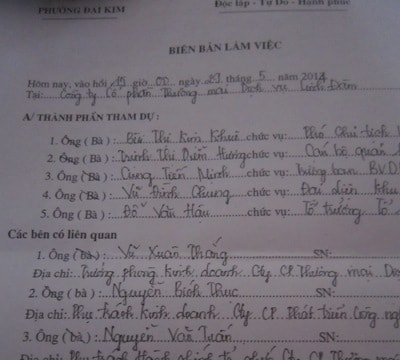 PHƯỜNG ĐẠI KIM
Độc lập - Tự Do - Hạnh phúc
BIÊN BẢN LÀM VIỆC
Hôm nay, vào hồi 15 giờ 00 ngày 29 tháng 5 năm 2014
Tại: Công ty Cổ phần Thương mại Dịch vụ Linh Đàm
A/ THÀNH PHẦN THAM DỰ :
1. Ông ( Bà ) : Bùi Thị Kim Khuê chức vụ: Phó Chủ tịch
2. Ông ( Bà ) : Trịnh Thị Diễm Hương chức vụ: Cán bộ quản
3. Ông ( Bà ) : Cung Tiến Minh chức vụ: Trưởng ban BVD
4. Ông ( Bà ) : Vũ Đình Chung chức vụ: Đại diện khu
5. Ông ( Bà ) : Đỗ Văn Hậu chức vụ: Tổ trưởng Tổ
Các bên có liên quan
1. Ông (bà) : Vũ Xuân Thắng SN:
Địa chỉ: Trưởng phòng kinh doanh Cty CP Thương mại
2. Ông ( bà ) : Nguyễn Bích Thục SN:
Địa chỉ: Phụ trách kinh doanh Cty CP Phát triển Công
3. Ông ( bà ) : Nguyễn Văn Tuấn SN:
Địa chỉ: Phụ trách Cty CP Thương mại